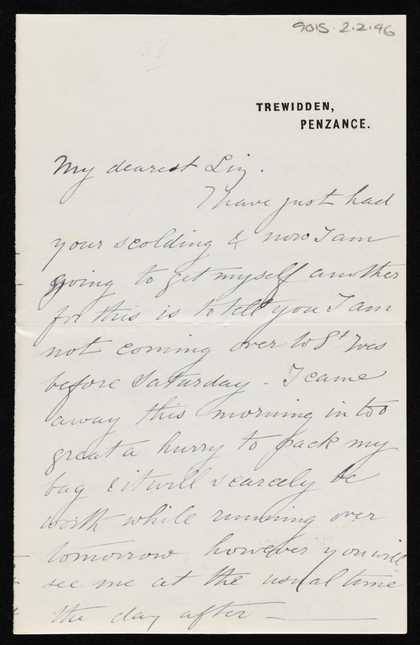 9015.2.2.96
TREWIDDEN,
PENZANCE.
My dearest Liz.
I have just had
your scolding & now I am
going to get myself another
for this is to tell you I am
not coming over to St Ives
before Saturday - I came
away this morning in too
great a hurry to pack my
bag & it will scarcely be
worth while running over
tomorrow however you will
see me at the usual time
the day after -